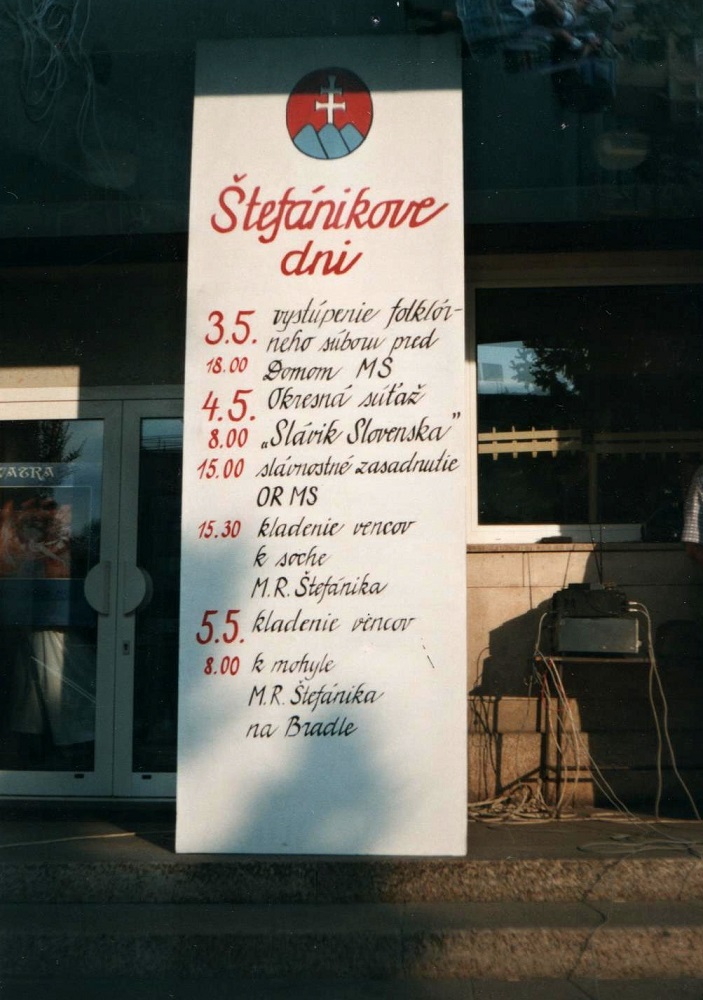 Štefánikove
dni
3.5. vystúpenie folklór-
neho súboru pred
18.00 Domom MS
4.5. Okresná súťaž
8.00 „Slávik Slovenska”
15.00 slávnostné zasadnutie
OR MS
15.30 kladenie vencov
k soche
M.R. Štefánika
5.5. kladenie vencov
8.00 k mohyle
M.R. Štefánika
na Bradle